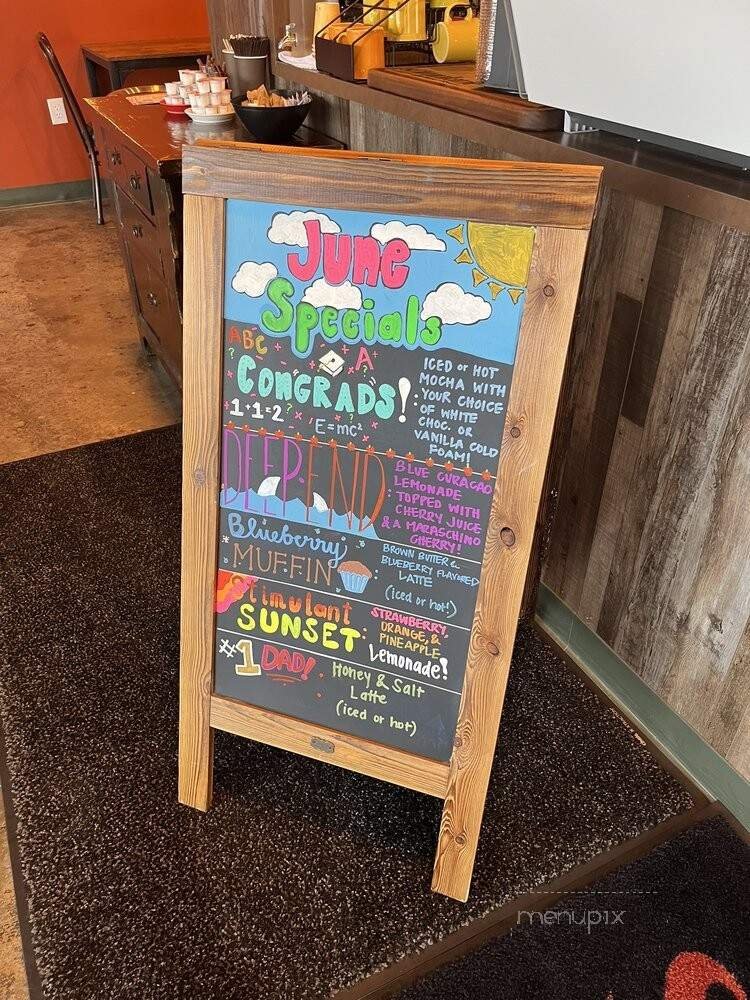 June
Specials
ABC
A+
CONGRADS!:
1+1=2
E=mc²
ICED or HOT
MOCHA WITH
YOUR CHOICE
OF WHITE
CHOC. OR
VANILLA COLD
FOAM!
DEEP END
BLUE CURACAO
LEMONADE
: TOPPED WITH
CHERRY JUICE
& A MARASCHINO
CHERRY!
Blueberry
MUFFIN :
BROWN BUTTER &
BLUEBERRY FLAVORED
LATTE
(iced or hot!)
Stimulant
SUNSET :
STRAWBERRY,
ORANGE, &
PINEAPPLE
Lemonade!
#1 DAD! :
Honey & Salt
Latte
(iced or hot)
menupix